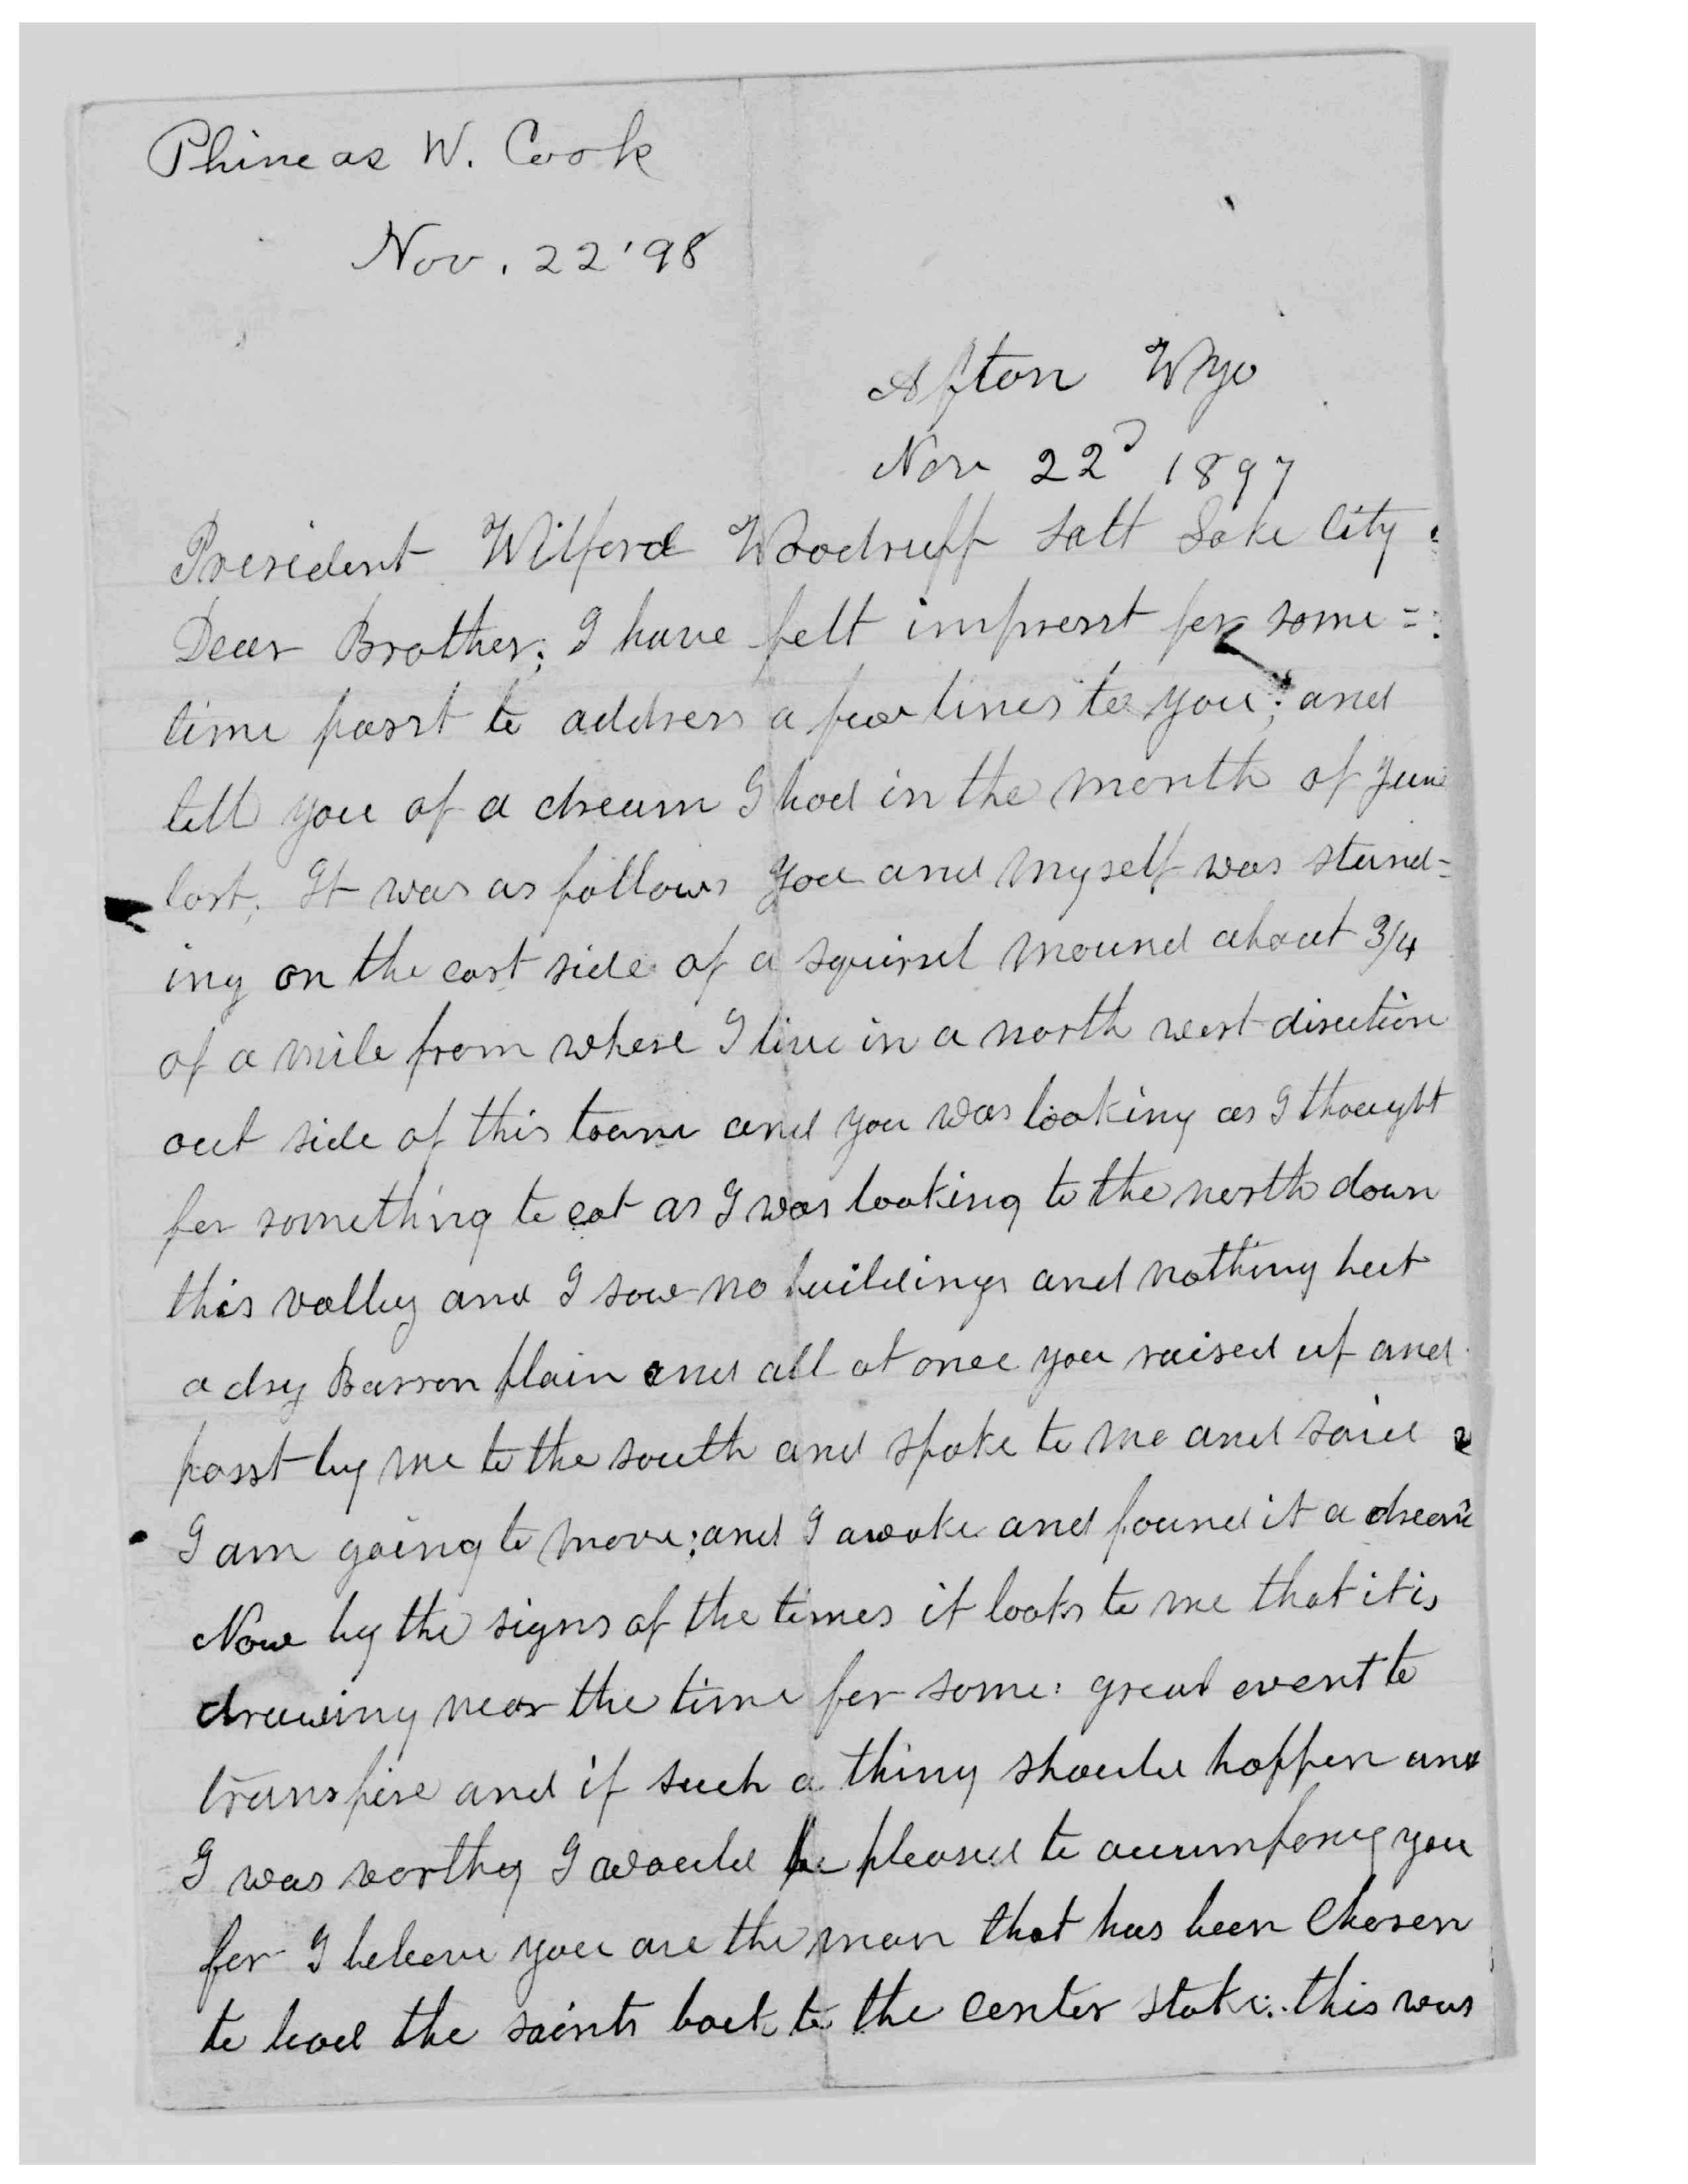 Phineas W. Cook
Nov. 22 '98
Afton Wyo
Nov 22d 1897
President Wilford Woodruff Salt Lake City.
Dear Brother; I have felt imprest for some=
time passt to address a few lines to you; and
tell you of a dream I had in the month of June
last; It was as follows you and myself was stand=
ing on the east side of a squirrel mound about 3/4
of a mile from where I live in a north west direction
out side of this town and you was looking as I thought
for something to eat as I was looking to the north down
this valley and I saw no buildings and nothing but
a dry Barron plain and all at once you raised up and
passt by me to the south and spoke to me and said
I am going to move; and I awoke and found it a dream
Now by the signs of the times it looks to me that it is
drawing near the time for some: great event to
transpire and if such a thing should happen and
I was worthy I would be pleased to accumpany you
for I beleeve you are the man that has been Chosen
to lead the saints back to the center stake: this was